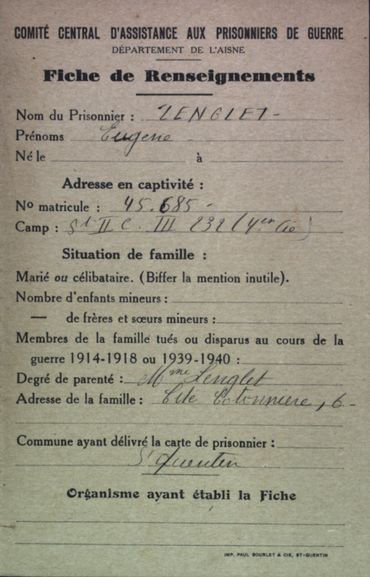 COMITÉ CENTRAL D'ASSISTANCE AUX PRISONNIERS DE GUERRE
DÉPARTEMENT DE L'AISNE
Fiche de Renseignements
Nom du Prisonnier : LENGLET -
Prénoms Eugene
Né le à
Adresse en captivité :
No matricule : 45.685 -
Camp : St II C. III 232 (4em Cie)
Situation de famille :
Marié ou célibataire. (Biffer la mention inutile).
Nombre d'enfants mineurs :
— de frères et sœurs mineurs :
Membres de la famille tués ou disparus au cours de la
guerre 1914-1918 ou 1939-1940 :
Degré de parenté : Mme Lenglet
Adresse de la famille : Cité Cotonniere, 6 -
Commune ayant délivré la carte de prisonnier :
St Quentin
Organisme ayant établi la Fiche
IMP. PAUL BOURLET & CIE, ST-QUENTIN